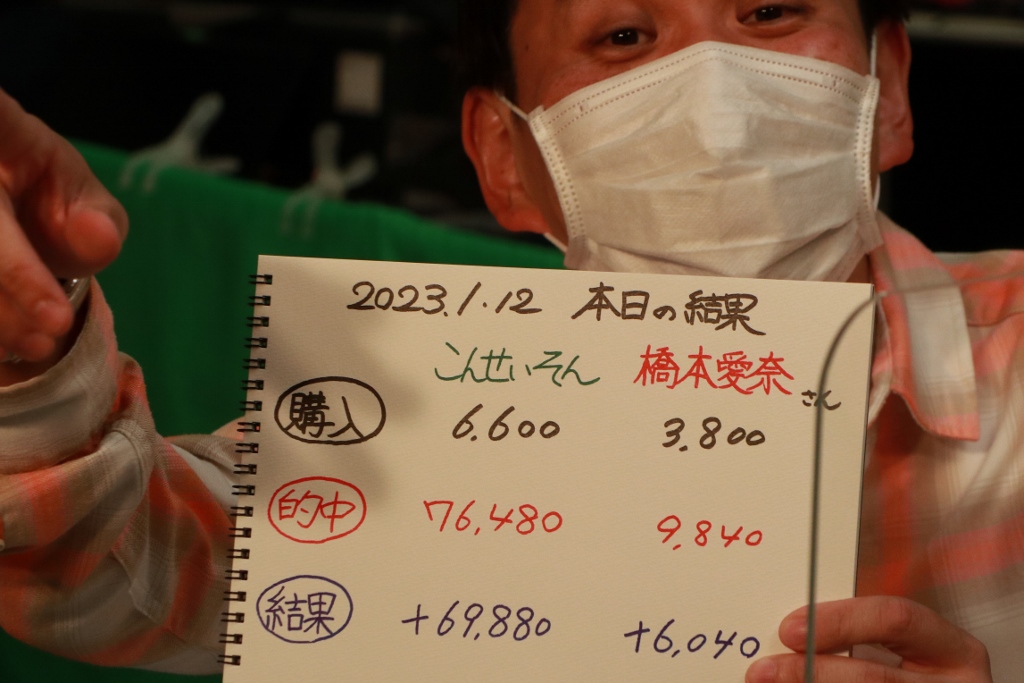 2023.1.12 本日の結果
こんせいそん 橋本愛奈さん
購入 6.600 3.800
的中 76,480 9,840
結果 +69,880 +6,040